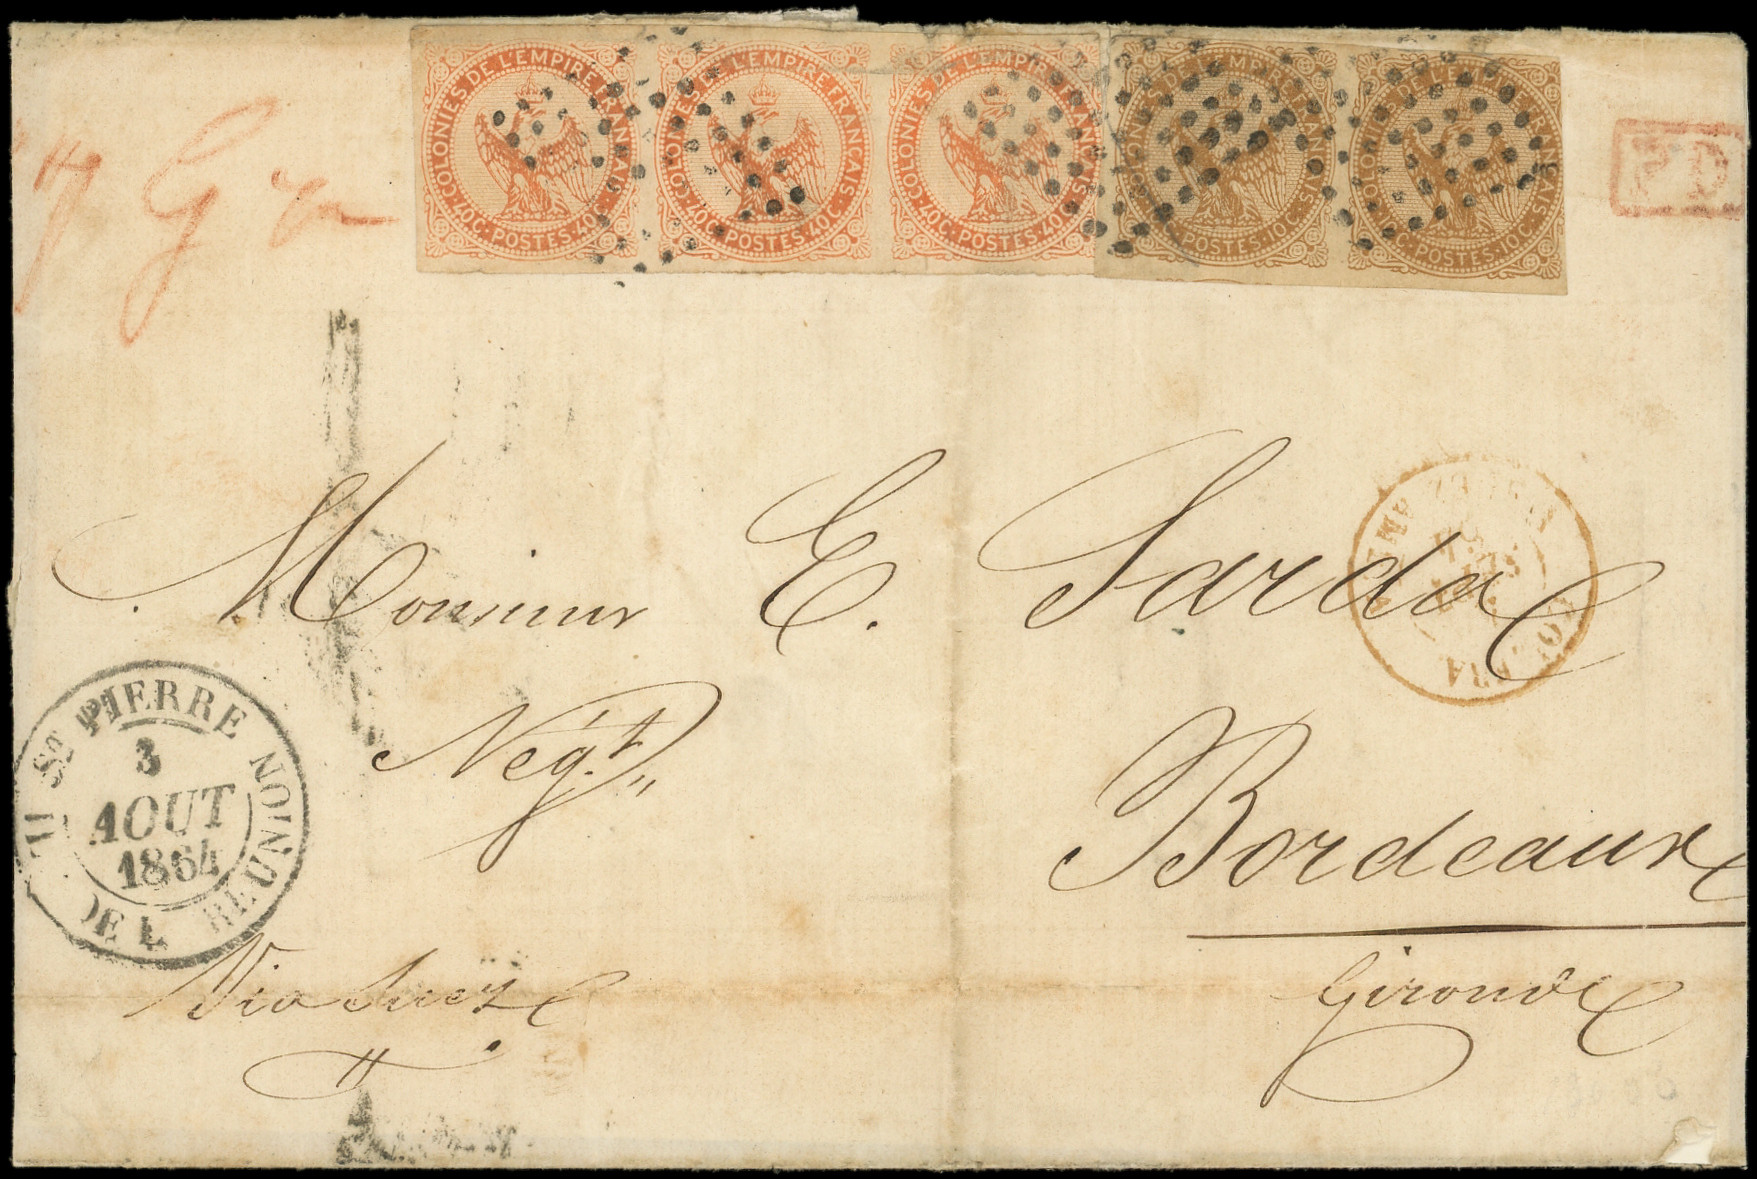 COLONIES DE L'EMPIRE FRANÇAIS
40C. POSTES. 40C
COLONIES DE L'EMPIRE FRANÇAIS
40C. POSTES. 40C
COLONIES DE L'EMPIRE FRANÇAIS
40C. POSTES. 40C
COLONIES DE L'EMPIRE FRANÇAIS
10C. POSTES. 10C
COLONIES DE L'EMPIRE FRANÇAIS
10C. POSTES. 10C
Gr
P.D.
Monsieur E. Sarda
Negt.
Bordeaux
Gironde
ST PIERRE
3
AOUT
1864
ILE DE LA RÉUNION
Via Suez